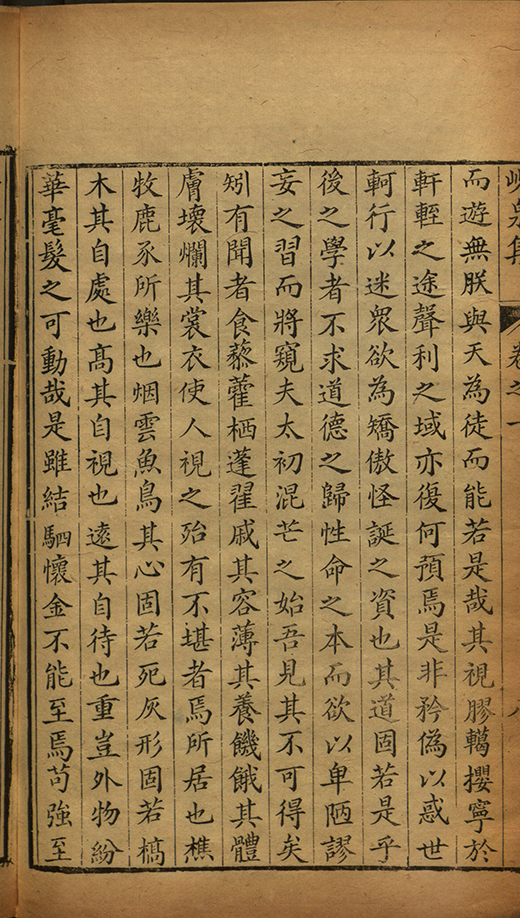 峴泉集
卷之一
八
而遊無朕與天為徒而能若是哉其視膠轕攖寧於
軒輊之途聲利之域亦復何預焉是非矜偽以惑世
軻行以迷眾欲為矯傲怪誕之資也其道固若是乎
後之學者不求道德之歸性命之本而欲以卑陋謬
妄之習而將窺夫太初混芒之始吾見其不可得矣
矧有聞者食藜藿栖蓬翟戚其容薄其養饑餓其體
膚壞爛其裳衣使人視之殆有不堪者焉所居也樵
牧鹿豕所樂也烟雲魚鳥其心固若死灰形固若槁
木其自處也高其自視也遠其自待也重豈外物紛
華毫髮之可動哉是雖結駟懷金不能至焉苟強至